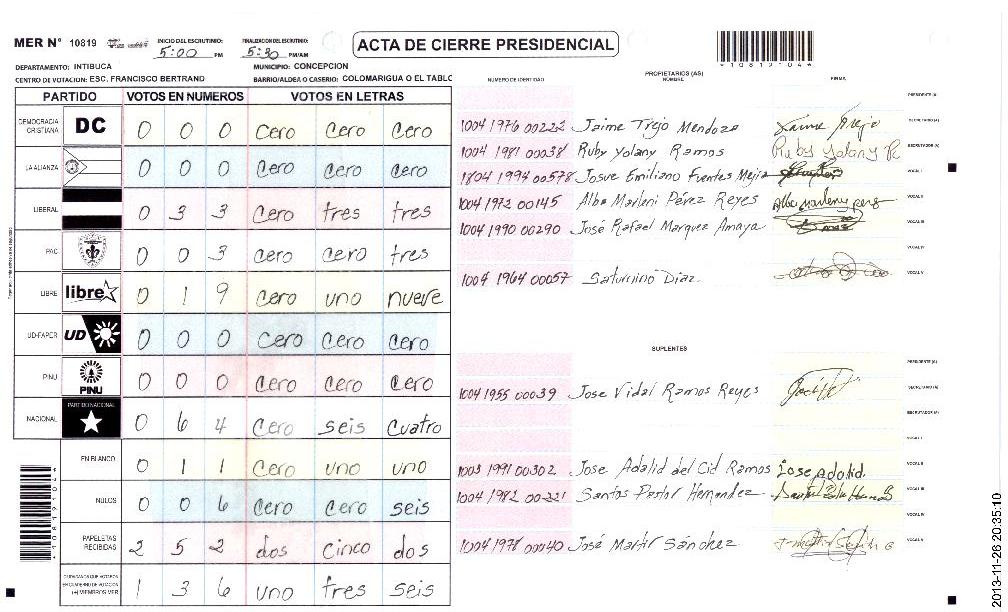 MER N° 10819
INICIO DEL ESCRUTINIO: 5:00 PM
FINALIZACION DEL ESCRUTINIO: 5:30 PM/AM
ACTA DE CIERRE PRESIDENCIAL
*108191044*
DEPARTAMENTO: INTIBUCA
MUNICIPIO: CONCEPCION
CENTRO DE VOTACION: ESC. FRANCISCO BERTRAND
BARRIO/ALDEA O CASERIO: COLOMARIGUA O EL TABLC
PARTIDO VOTOS EN NUMEROS VOTOS EN LETRAS
DEMOCRACIA CRISTIANA DC 0 0 0 Cero Cero Cero
LA ALIANZA 0 0 0 Cero Cero Cero
LIBERAL 0 3 3 Cero tres tres
PAC 0 0 3 Cero Cero tres
LIBRE libre 0 1 9 Cero uno nueve
UD-FAPER UD 0 0 0 Cero Cero Cero
PINU PINU 0 0 0 Cero Cero Cero
NACIONAL PARTIDO NACIONAL 0 6 4 Cero seis Cuatro
EN BLANCO 0 1 1 Cero uno uno
NULOS 0 0 6 Cero Cero seis
PAPELETAS RECIBIDAS 2 5 2 dos Cinco dos
CIUDADANOS QUE VOTARON EN CUADERNO DE VOTACION (+) MIEMBROS MER 1 3 6 uno tres seis
*108191044*
NUMERO DE IDENTIDAD PROPIETARIOS (AS) NOMBRE FIRMA
PRESIDENTE (A)
1004 1976 00222 Jaime Trejo Mendoza Jaime Trejo SECRETARIO (A)
1004 1981 00038 Ruby Yolany Ramos Ruby Yolany R ESCRUTADOR (A)
1804 1994 00578 Josue Emiliano Fuentes Mejia VOCAL I
1004 1972 00145 Alba Marleni Pérez Reyes Alba Marleny perez VOCAL II
1004 1990 00290 José Rafael Marquez Amaya VOCAL III
VOCAL IV
1004 1964 00057 Saturnino Diaz VOCAL V
SUPLENTES
PRESIDENTE (A)
1004 1955 00039 Jose Vidal Ramos Reyes SECRETARIO (A)
ESCRUTADOR (A)
VOCAL I
1003 1991 00302 Jose Adalid del Cid Ramos Jose Adalid. VOCAL II
1004 1982 00221 Santos Pastor Hernandez VOCAL III
VOCAL IV
1004 1978 00140 José Martir Sánchez VOCAL V
2013-11-26 20:35:10